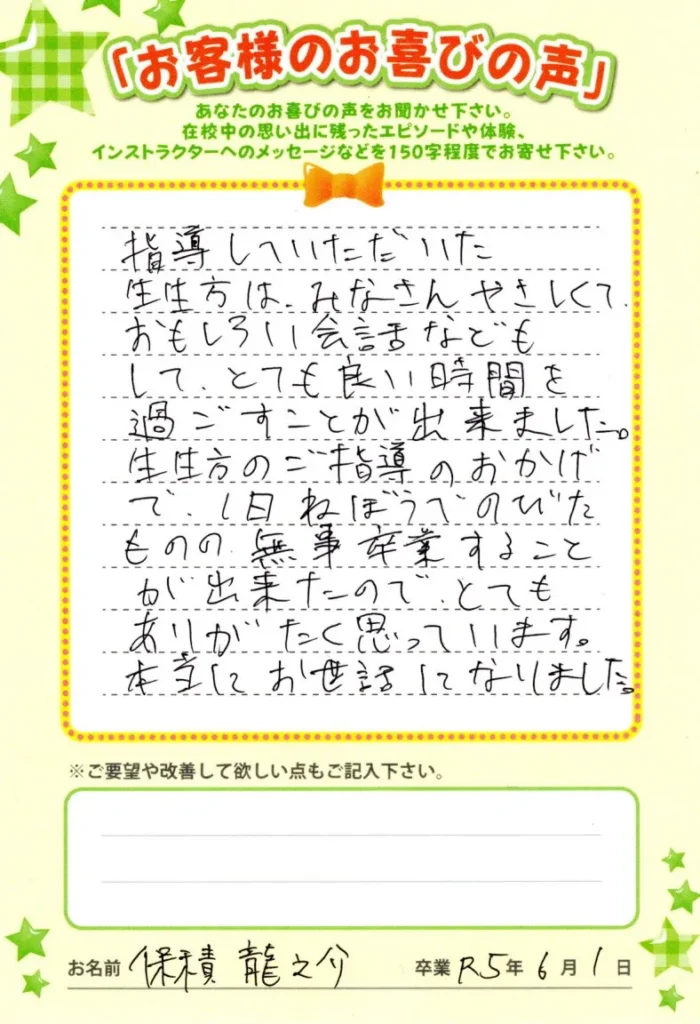 「お客様のお喜びの声」
あなたのお喜びの声をお聞かせ下さい。
在校中の思い出に残ったエピソードや体験、
インストラクターへのメッセージなどを150字程度でお寄せ下さい。
指導していただいた
生生方は、みなさんやさしくて、
おもしろいい会話なども
して、とても良い時間を
過ごすことが出来ました。
生生方のご指導のおかげ
で、1日ねぼうでのびた
ものの、無事卒業すること
が出来たので、とても
ありがたく思っています。
本当にお世話になりました。
※ご要望や改善して欲しい点もご記入下さい。
お名前 保積 龍之介 卒業 R5年 6月 1日